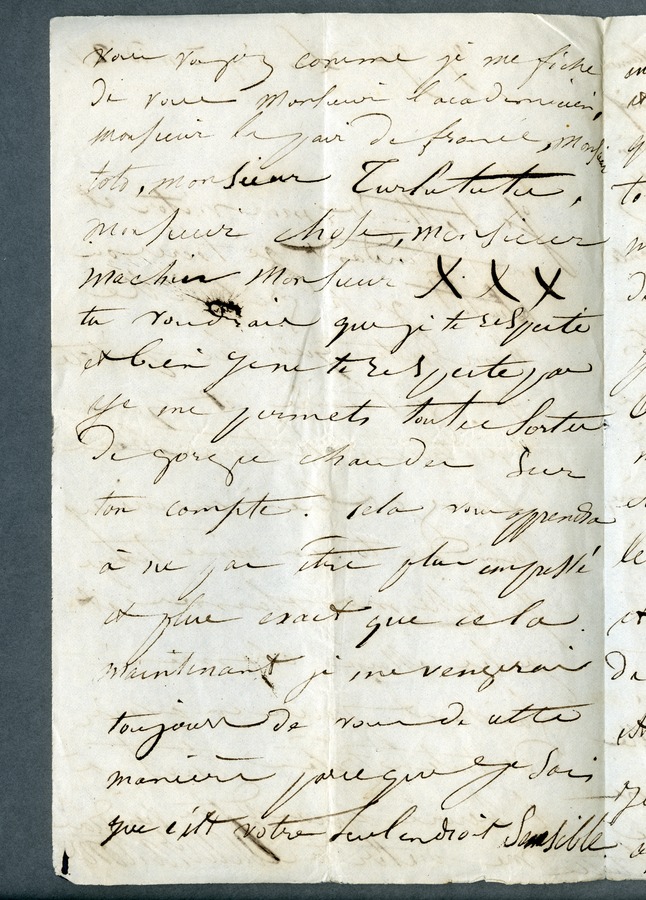 vous voyez comme je me fiche
de vous monsieur l'académicien,
monsieur le pair de france, monsieur
toto, monsieur Turlututu,
monsieur chose, monsieur
machin monsieur X X X
tu voudrais que je te respecte
et bien je ne te respecte pas
et je me permets toutes sortes
de gorge chaudes sur
ton compte. cela vous apprendra
à ne pas être plus empressé
et plus exact que cela.
maintenant je me vengerai
toujours de vous de cette
manière parce que je sais
que c'est votre seul endroit sensible.